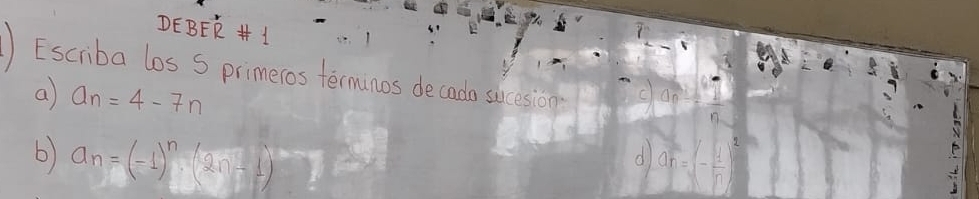 DEBER # 1
1) Escriba los 5 primeros términos de cada sucesión.
a) an = 4 - 7n
b) an = (-1)^n . (2n - 1)
c) an = / n
d) an = (- 1/n)^2